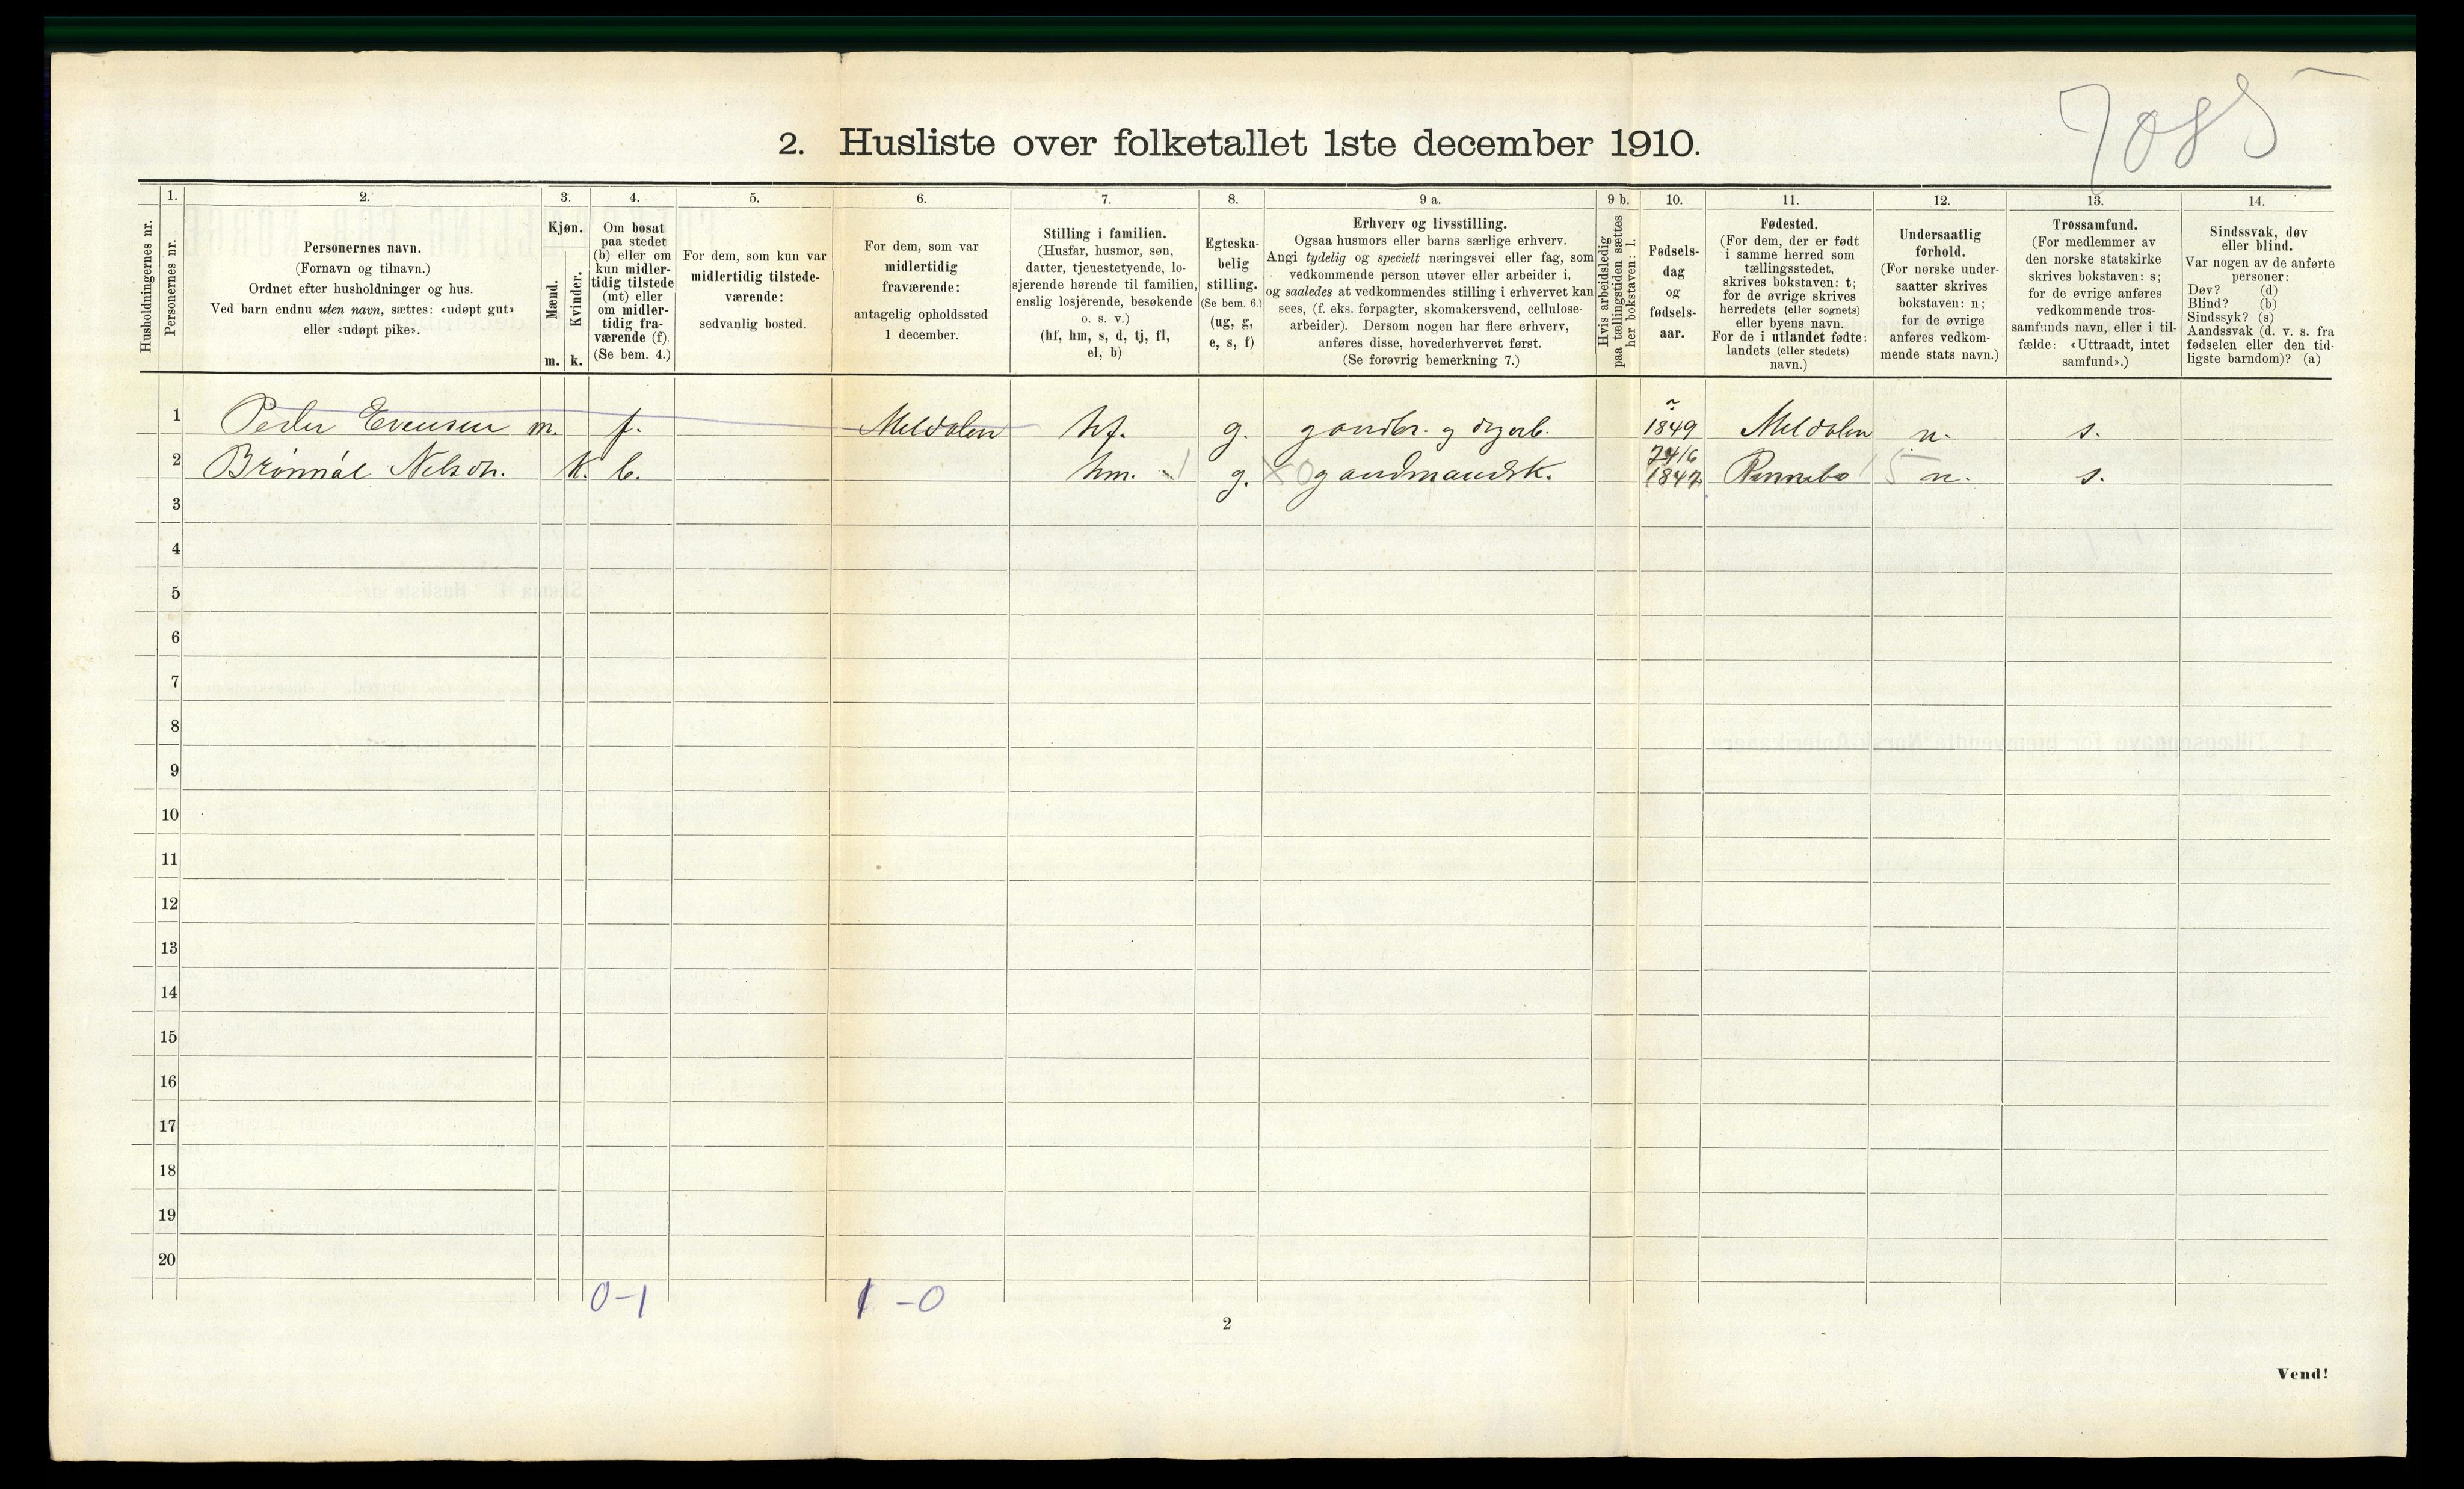 7085
2. Husliste over folketallet 1ste december 1910.
Husholdningernes nr.
1.
Personernes nr.
2.
Personernes navn.
(Fornavn og tilnavn.)
Ordnet efter husholdninger og hus.
Ved barn endnu uten navn, sættes: «udøpt gut»
eller «udøpt pike».
3.
Kjøn.
Mænd.
m.
Kvinder.
k.
4.
Om bosat
paa stedet
(b) eller om
kun midler-
tidig tilstede
(mt) eller
om midler-
tidig fra-
værende (f).
(Se bem. 4.)
5.
For dem, som kun var
midlertidig tilstede-
værende:
sedvanlig bosted.
6.
For dem, som var
midlertidig
fraværende:
antagelig opholdssted
1 december.
7.
Stilling i familien.
(Husfar, husmor, søn,
datter, tjenestetyende, lo-
sjerende hørende til familien,
enslig losjerende, besøkende
o. s. v.)
(hf, hm, s, d, tj, fl,
el, b)
8.
Egteska-
belig
stilling.
(Se bem. 6.)
(ug, g,
e, s, f)
9 a.
Erhverv og livsstilling.
Ogsaa husmors eller barns særlige erhverv.
Angi tydelig og specielt næringsvei eller fag, som
vedkommende person utøver eller arbeider i,
og saaledes at vedkommendes stilling i erhvervet kan
sees, (f. eks. forpagter, skomakersvend, cellulose-
arbeider). Dersom nogen har flere erhverv,
anføres disse, hovederhvervet først.
(Se forøvrig bemerkning 7.)
9 b.
Hvis arbeidsledig
paa tællingstiden sættes
her bokstaven: l.
10.
Fødsels-
dag
og
fødsels-
aar.
11.
Fødested.
(For dem, der er født
i samme herred som
tællingsstedet,
skrives bokstaven: t;
for de øvrige skrives
herredets (eller sognets)
eller byens navn.
For de i utlandet fødte:
landets (eller stedets)
navn.)
12.
Undersaatlig
forhold.
(For norske under-
saatter skrives
bokstaven: n;
for de øvrige
anføres vedkom-
mende stats navn.)
13.
Trossamfund.
(For medlemmer av
den norske statskirke
skrives bokstaven: s;
for de øvrige anføres
vedkommende tros-
samfunds navn, eller i til-
fælde: «Uttraadt, intet
samfund».)
14.
Sindssvak, døv
eller blind.
Var nogen av de anførte
personer:
Døv? (d)
Blind? (b)
Sindssyk? (s)
Aandssvak (d. v. s. fra
fødselen eller den tid-
ligste barndom)? (a)
1 Peder Evensen m. f. Meldalen hf. g. 1849 Meldalen n. s.
2 Nelsdr. K. b. hm. g. gaardmandsk. 1847 Rennebo n. s.
3
4
5
6
7
8
9
10
11
12
13
14
15
16
17
18
19
20
0-1 1-0
2
Vend!